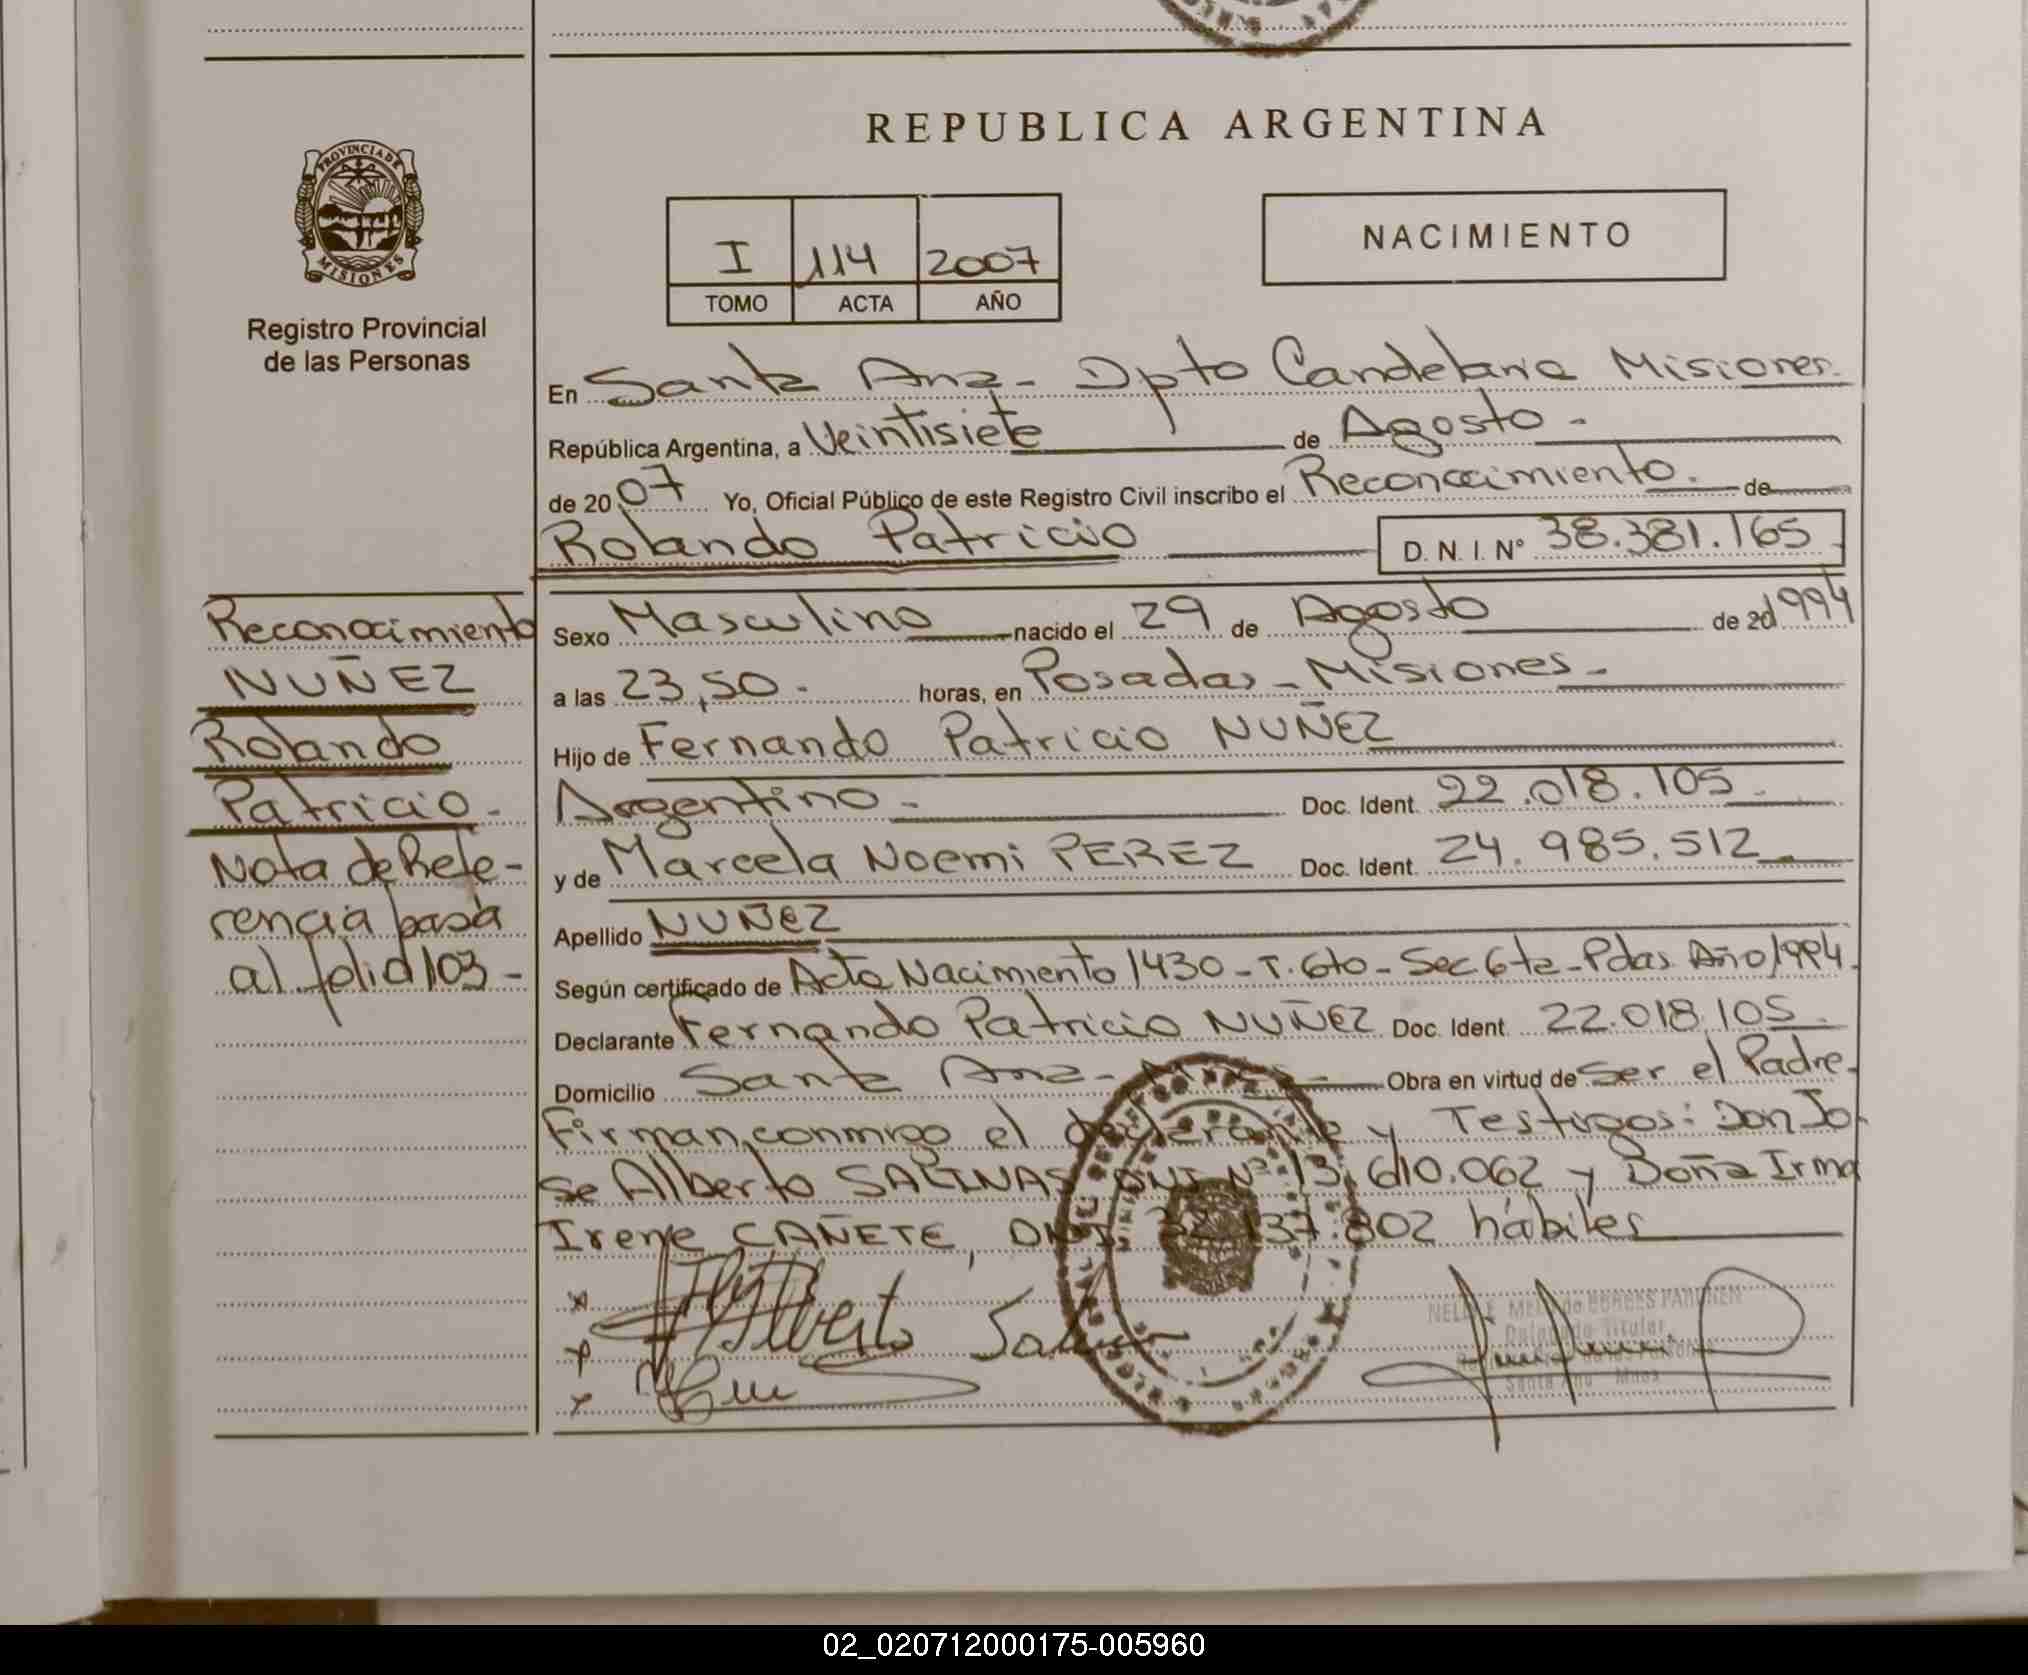 REPUBLICA ARGENTINA
PROVINCIA DE MISIONES
Registro Provincial
de las Personas
I 114 2007
TOMO ACTA AÑO
NACIMIENTO
En Santa Ana - Dpto Candelaria Misiones.
República Argentina, a Veintisiete de Agosto -
de 2007 Yo, Oficial Público de este Registro Civil inscribo el Reconocimiento. de
Rolando Patricio D. N. I. Nº 38.381.165
Sexo Masculino nacido el 29 de Agosto de 20 1994
a las 23,50. horas, en Posadas - Misiones -
Hijo de Fernando Patricio NUÑEZ
Argentino - Doc. Ident. 22.018.105.
y de Marcela Noemi PEREZ Doc. Ident. 24.985.512
Apellido NUÑEZ
Según certificado de Acta Nacimiento 1430 - T. 6to - Sec 6ta - Pdas Año 1994.
Declarante Fernando Patricio NUÑEZ Doc. Ident. 22.018.105.
Domicilio Santa Ana - Obra en virtud de Ser el Padre.
Firman conmigo el declarante y Testigos: Don Jo-
se Alberto SALINAS, DNI Nº 13.610.062 y Doña Irma
Irene CAÑETE, DNI. 137.802 hábiles
x Alberto
x
x
Delegado Titular
Santa Ana Mnes
Reconocimiento
NUÑEZ
Rolando
Patricio -
Nota de Refe-
rencia pasa
al folio 103 -
02_020712000175-005960